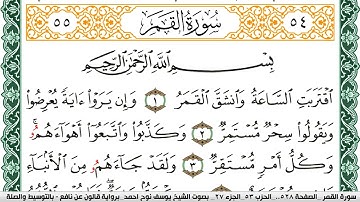 ٥٥ سُورَةُ القَمَرِ ٥٤
بِسْمِ اللَّهِ الرَّحْمَٰنِ الرَّحِيمِ
اَقْتَرَبَتِ السَّاعَةُ وَانشَقَّ الْقَمَرُ ١ وَإِنْ يَرَوْاْ ءَايَةً يُعْرِضُواْ
وَيَقُولُواْ سِحْرٌ مُّسْتَمِرٌّ ٢ وَكَذَّبُواْ وَاتَّبَعُواْ أَهْوَآءَهُمُۥ
وَكُلُّ أَمْرٍ مُّسْتَقِرٌّ ٣ وَلَقَدْ جَآءَهُمُۥ مِنَ الْأَنۢبَآءِ
سورة القمر . الصفحة ٥٢٨ . الحزب ٥٣ . الجزء ٢٧ . بصوت الشيخ يوسف نوح احمد . برواية قالون عن نافع - بالتوسيط والصلة